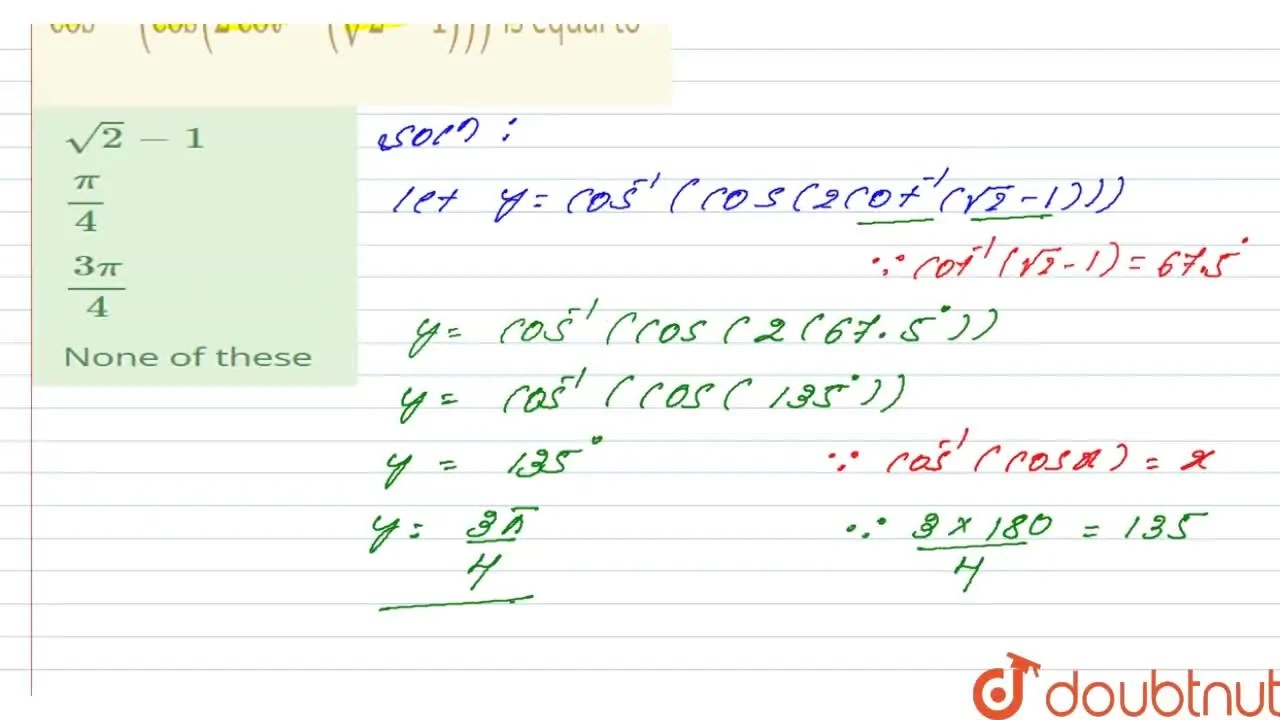 cos (cos(2 cot (√2 1))) is equal to
√2 − 1
π/4
3π/4
None of these
soln :
let y = cos⁻¹ (cos(2cot⁻¹(√2-1)))
∵ cot⁻¹(√2-1) = 67.5°
y = cos⁻¹ (cos(2(67.5°))
y = cos⁻¹ (cos(135°))
y = 135°
∵ cos⁻¹(cosx) = x
y = 3π/4
∵ 3×180/4 = 135
doubtnut